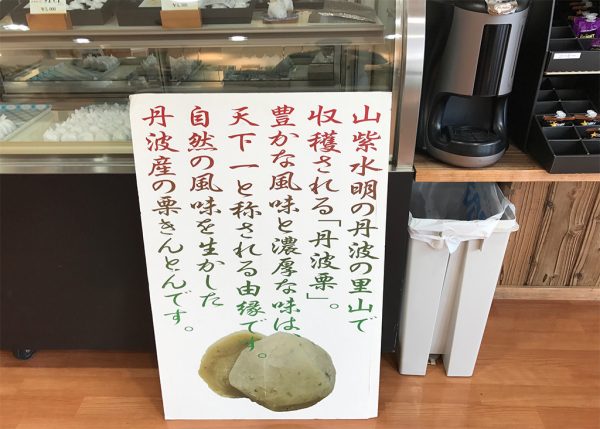 山紫水明の丹波の里山で
収穫される「丹波栗」。
豊かな風味と濃厚な味は、
天下一と称される由縁です。
自然の風味を生かした
丹波産の栗きんとんです。